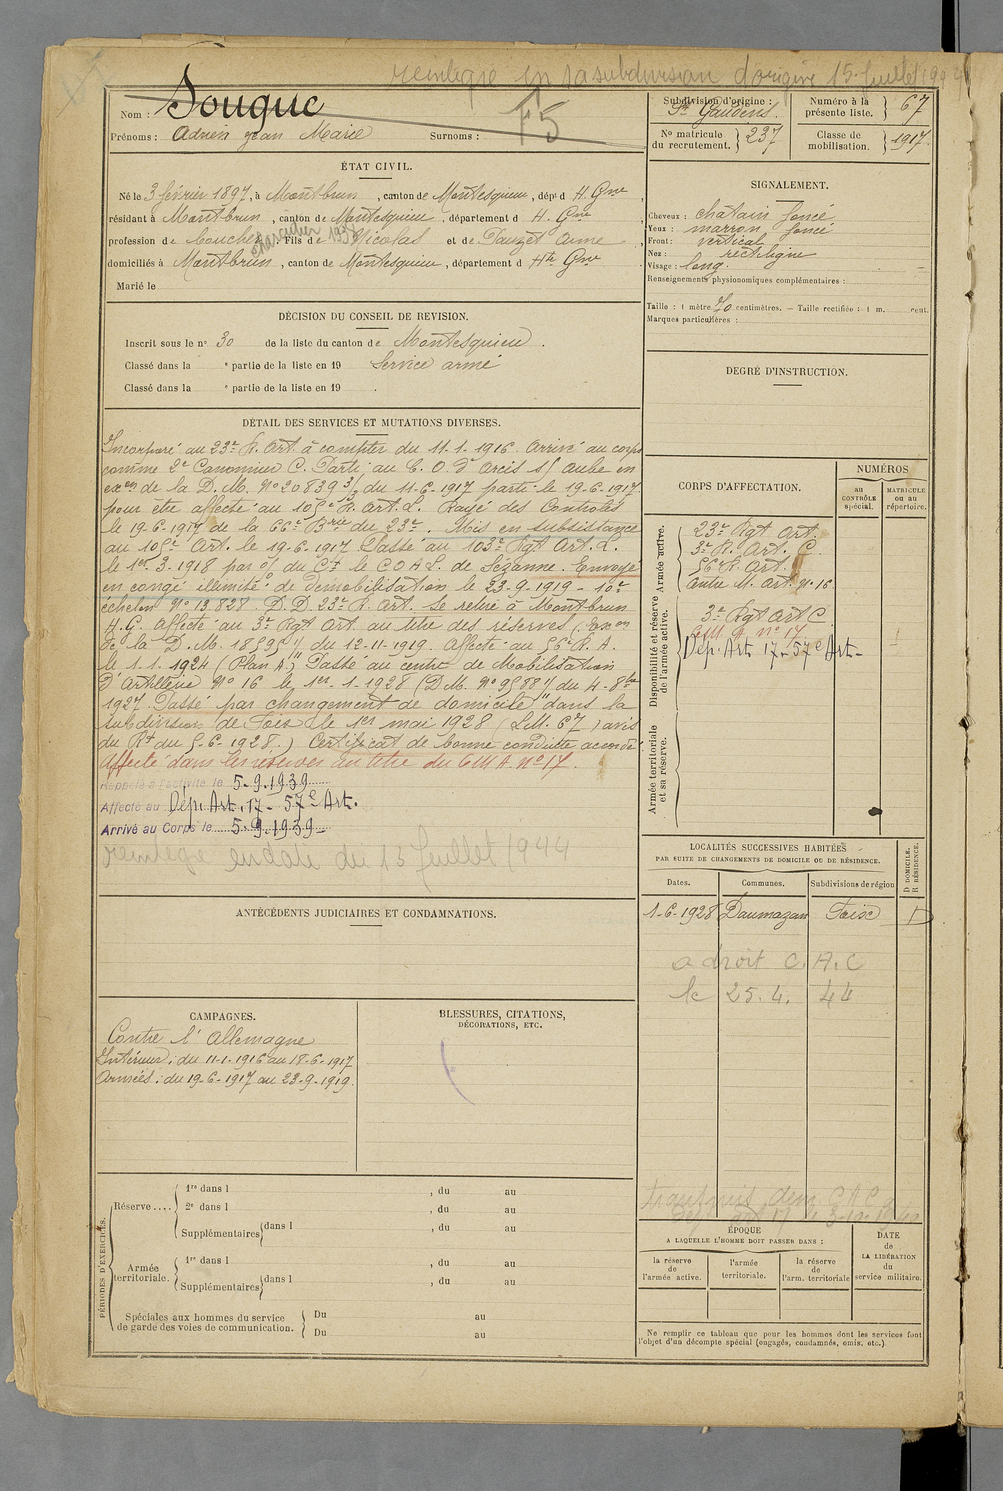 réintégré en sa subdivision d'origine 15 Juillet 1944
Nom : Souque
F5
Prénoms : Adrien Jean Marie Surnoms :
Subdivision d'origine : St Gaudens.
Numéro à la présente liste. 67
No matricule du recrutement. 237
Classe de mobilisation. 1917
ÉTAT CIVIL.
Né le 3 février 1897, à Montbrun, canton de Montesquieu, dépt d H. Gne,
résidant à Montbrun, canton de Montesquieu, département d H. Gne
profession de boucher. Fils de Nicolas et de Pauzet Anne,
charcutier 1938
domiciliés à Montbrun, canton de Montesquieu, département d Hte Gne
Marié le
SIGNALEMENT.
Cheveux : châtain foncé
Yeux : marron foncé
Front : vertical
Nez : rectiligne
Visage : long
Renseignements physionomiques complémentaires :
Taille : 1 mètre 70 centimètres. — Taille rectifiée : 1 m. cent.
Marques particulières :
DÉCISION DU CONSEIL DE REVISION.
Inscrit sous le no 30 de la liste du canton de Montesquieu.
Classé dans la e partie de la liste en 19 Service armé
Classé dans la e partie de la liste en 19 .
DEGRÉ D'INSTRUCTION.
DÉTAIL DES SERVICES ET MUTATIONS DIVERSES.
Incorporé au 23e R. Art. à compter du 11-1-1916. Arrivé au corps
comme 2e Canonnier C. Parti au C. O. d'Arcis s/ Aube en
exon de la D. M. No 20839 3/3 du 11-6-1917 parti le 19-6-1917
pour être affecté au 105e R. Art. L. Rayé des Controles
le 19-6-1917 de la 66e Brie du 23e. Mis en subsistance
au 105e Art. le 19-6-1917 Passé au 103e Rgt Art. L.
le 1er 3-1918 par o/ du Ct le C O A L. de Sézanne. Envoyé
en congé illimité de démobilisation le 23-9-1919 - 10e
échelon No 13.828. D. D. 23e R. Art. Se retire à Montbrun
H.G. Affecté au 3e Rgt Art au titre des réserves, exon
de la D.M. 18595 1/11 du 12-11-1919. Affecté au 56e R.A.
le 1.1.1924 (Plan A) Passé au centre de Mobilisation
d'Artillerie No 16 le 1er-1-1928 (D M. No 9588 1/11 du 4-8bre
1927. Passé par changement de domicile dans la
subdivision de Foix le 1er mai 1928 (Litt. 67) avis
du Rt du 5-6-1928.) Certificat de bonne conduite accordé
Affecté dans les réserves au titre du C M A. No 17.
Rappelé à l'activité le 5-9-1939
Affecté au Dép. Art. 17 - 57e Art.
Arrivé au Corps le 5.9.1939
réintégré en date du 15 Juillet 1944
CORPS D'AFFECTATION.
NUMÉROS
au CONTRÔLE spécial.
MATRICULE ou au répertoire.
Armée active.
23e Rgt Art.
3e R. Art. C.
56e R. Art.
Centre M. Art. No 16
Disponibilité et réserve de l'armée active.
3e Rgt Art C.
CM A no 17.
Dép. Art. 17 - 57e Art.
Armée territoriale et sa réserve.
LOCALITÉS SUCCESSIVES HABITÉES
PAR SUITE DE CHANGEMENTS DE DOMICILE OU DE RÉSIDENCE.
Dates. Communes. Subdivisions de région
D DOMICILE. R RÉSIDENCE.
1-6-1928 Daumazan Foix D
a droit C. A. C
le 25.4.44
ANTÉCÉDENTS JUDICIAIRES ET CONDAMNATIONS.
CAMPAGNES.
Contre l'Allemagne
Intérieur : du 11-1-1916 au 18-6-1917
Armées : du 19-6-1917 au 23-9-1919.
BLESSURES, CITATIONS,
DÉCORATIONS, ETC.
PÉRIODES D'EXERCICES.
Réserve....
1re dans l , du au
2e dans l , du au
Supplémentaires dans l , du au
Armée territoriale.
1re dans l , du au
Supplémentaires dans l , du au
Spéciales aux hommes du service de garde des voies de communication.
Du au
Du au
ÉPOQUE
A LAQUELLE L'HOMME DOIT PASSER DANS :
la réserve de l'armée active.
l'armée territoriale.
la réserve de l'arm. territoriale
DATE de LA LIBÉRATION du service militaire.
Ne remplir ce tableau que pour les hommes dont les services font
l'objet d'un décompte spécial (engagés, condamnés, omis, etc.).